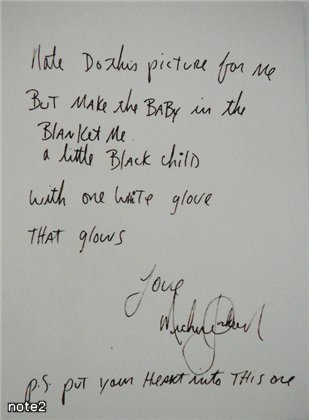 Nate Do this picture for me
BUT MAKE the BABY in the
BLANKET Me.
a little BLACK child
With one WHITE glove
THAT glows
Love
Michael Jackson
p.s. put your HEART into THIS one
note2